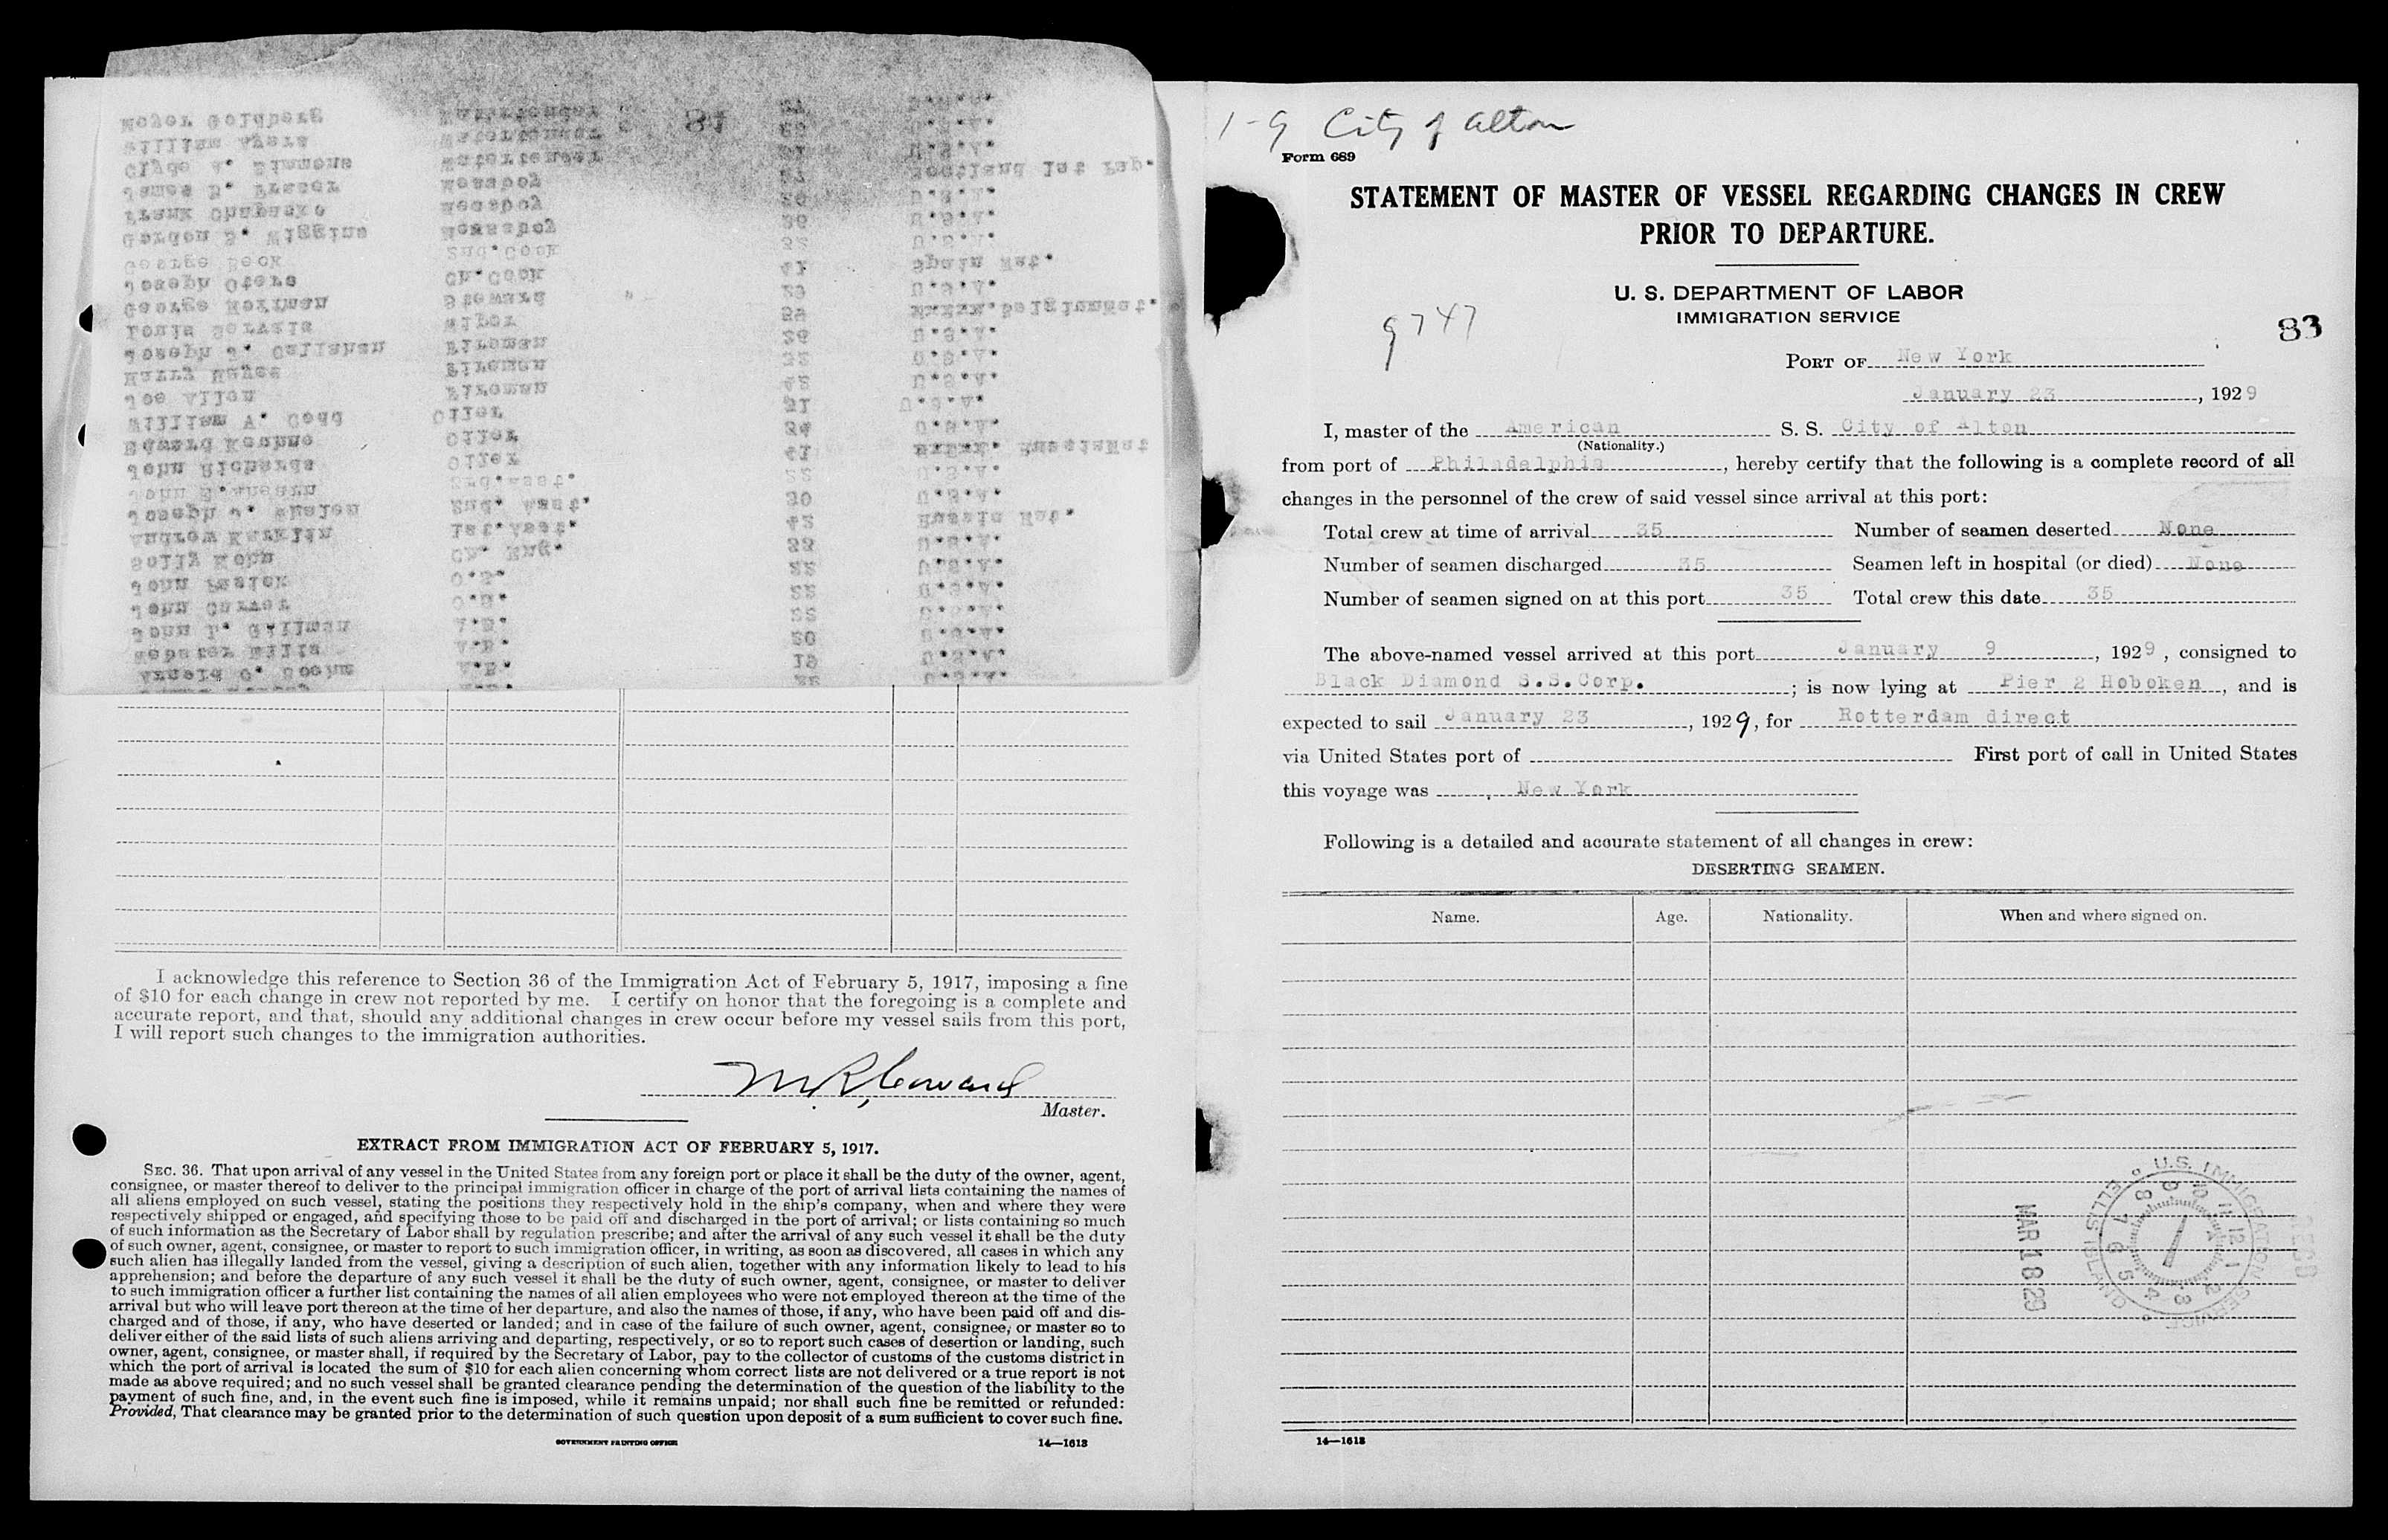 Meyer Goldberg Watertender 27 U.S.A.
81
William Ayers Watertender U.S.A.
Clyde A. Simmons Watertender U.S.A.
James B. Fraser Messboy 27 Scotland 1st Pap.
Frank Messboy 20 U.S.A.
Gordon S. Wiggins Messboy 26 U.S.A.
George Beck 2nd.Cook 32 U.S.A.
Joseph Otero Ch.Cook 41 Spain Nat.
George Merriman Steward 29 U.S.A.
Servais Wiper 39 BelgiumNat.
Joseph J. Callahan Fireman 26 U.S.A.
Harry Hayes Fireman 32 U.S.A.
Joe Allen Fireman 42 U.S.A.
William A. Codd Oiler 31 U.S.A.
Edward Oiler 34 U.S.A.
John Richards Oiler 41 RussiaNat
John 2nd.Asst. 22 U.S.A.
Joseph J. Whalen 2nd. Asst. 30 U.S.A.
Andrew Karklin 1st.Asst. 42 Russia Nat.
Solly Kohn Ch. Eng. 33 U.S.A.
John O.S. 22 U.S.A.
John Carver O.S. 22 U.S.A.
John P. Gillman A.B. 22 U.S.A.
Webster Mills A.B. 20 U.S.A.
Arnold A.B. 19 U.S.A.
I acknowledge this reference to Section 36 of the Immigration Act of February 5, 1917, imposing a fine
of $10 for each change in crew not reported by me. I certify on honor that the foregoing is a complete and
accurate report, and that, should any additional changes in crew occur before my vessel sails from this port,
I will report such changes to the immigration authorities.
M. R. Coward
Master.
EXTRACT FROM IMMIGRATION ACT OF FEBRUARY 5, 1917.
SEC. 36. That upon arrival of any vessel in the United States from any foreign port or place it shall be the duty of the owner, agent,
consignee, or master thereof to deliver to the principal immigration officer in charge of the port of arrival lists containing the names of
all aliens employed on such vessel, stating the positions they respectively hold in the ship's company, when and where they were
respectively shipped or engaged, and specifying those to be paid off and discharged in the port of arrival; or lists containing so much
of such information as the Secretary of Labor shall by regulation prescribe; and after the arrival of any such vessel it shall be the duty
of such owner, agent, consignee, or master to report to such immigration officer, in writing, as soon as discovered, all cases in which any
such alien has illegally landed from the vessel, giving a description of such alien, together with any information likely to lead to his
apprehension; and before the departure of any such vessel it shall be the duty of such owner, agent, consignee, or master to deliver
to such immigration officer a further list containing the names of all alien employees who were not employed thereon at the time of the
arrival but who will leave port thereon at the time of her departure, and also the names of those, if any, who have been paid off and dis-
charged and of those, if any, who have deserted or landed; and in case of the failure of such owner, agent, consignee, or master so to
deliver either of the said lists of such aliens arriving and departing, respectively, or so to report such cases of desertion or landing, such
owner, agent, consignee, or master shall, if required by the Secretary of Labor, pay to the collector of customs of the customs district in
which the port of arrival is located the sum of $10 for each alien concerning whom correct lists are not delivered or a true report is not
made as above required; and no such vessel shall be granted clearance pending the determination of the question of the liability to the
payment of such fine, and, in the event such fine is imposed, while it remains unpaid; nor shall such fine be remitted or refunded:
Provided, That clearance may be granted prior to the determination of such question upon deposit of a sum sufficient to cover such fine.
GOVERNMENT PRINTING OFFICE 14—1613
1-9 City of Alton
Form 689
STATEMENT OF MASTER OF VESSEL REGARDING CHANGES IN CREW
PRIOR TO DEPARTURE.
U. S. DEPARTMENT OF LABOR
IMMIGRATION SERVICE
9747
83
PORT OF New York
January 23, 1929
I, master of the American S. S. City of Alton
(Nationality.)
from port of Philadelphia, hereby certify that the following is a complete record of all
changes in the personnel of the crew of said vessel since arrival at this port:
Total crew at time of arrival 35 Number of seamen deserted None
Number of seamen discharged 35 Seamen left in hospital (or died) None
Number of seamen signed on at this port 35 Total crew this date 35
The above-named vessel arrived at this port January 9, 1929, consigned to
Black Diamond S.S.Corp.; is now lying at Pier 2 Hoboken, and is
expected to sail January 23, 1929, for Rotterdam direct
via United States port of First port of call in United States
this voyage was New York
Following is a detailed and accurate statement of all changes in crew:
DESERTING SEAMEN.
Name. Age. Nationality. When and where signed on.
U.S. IMMIGRATION SERVICE ELLIS ISLAND
12 1 2 3 4 5 6 7 8 9 10 11
REC'D
MAR 18 29
14—1613